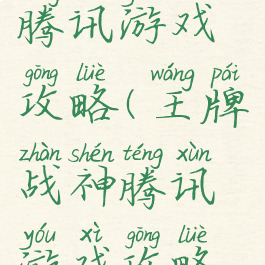 腾讯游戏
gōng lüè wáng pái
攻略(王牌
zhàn shén téng xùn
战神腾讯
yóu xì gōng lüè
游戏攻略